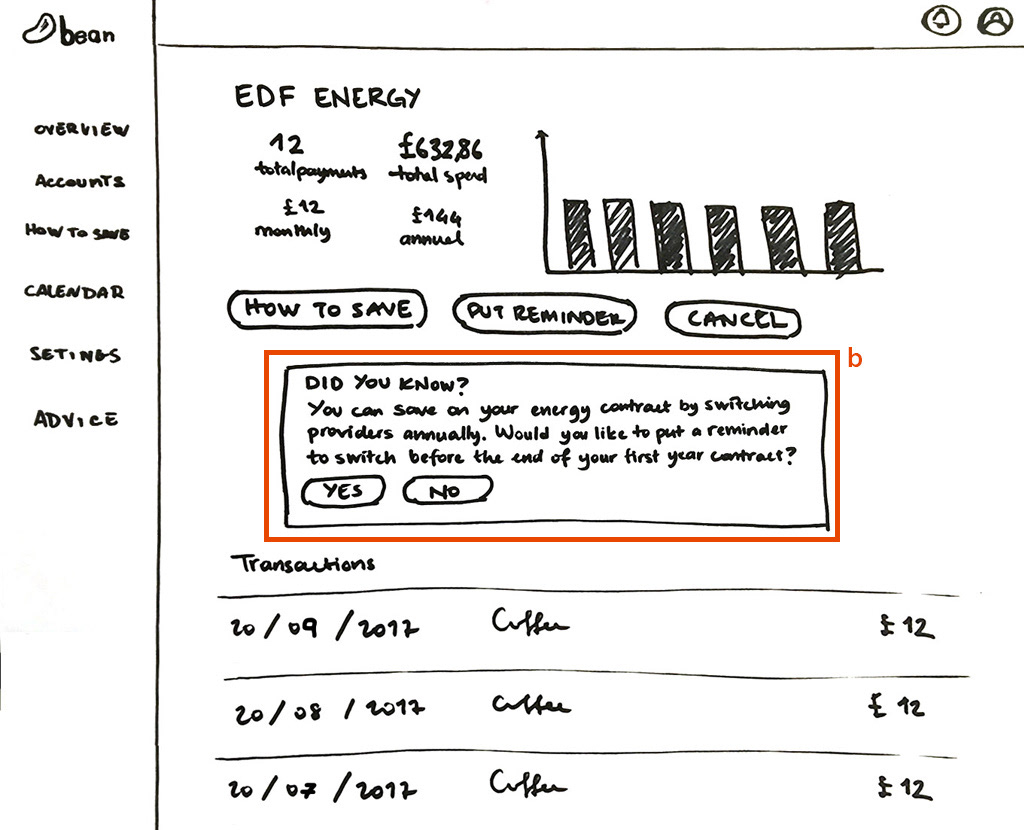 bean
OVERVIEW
ACCOUNTS
HOW TO SAVE
CALENDAR
SETINGS
ADVICE
EDF ENERGY
12
total payments
£632,86
total spend
£12
monthly
£144
annual
HOW TO SAVE
PUT REMINDER
CANCEL
b
DID YOU KNOW?
You can save on your energy contract by switching
providers annually. Would you like to put a reminder
to switch before the end of your first year contract?
YES
NO
Transactions
20/09/2017 Coffee £12
20/08/2017 Coffee £12
20/07/2017 Coffee £12